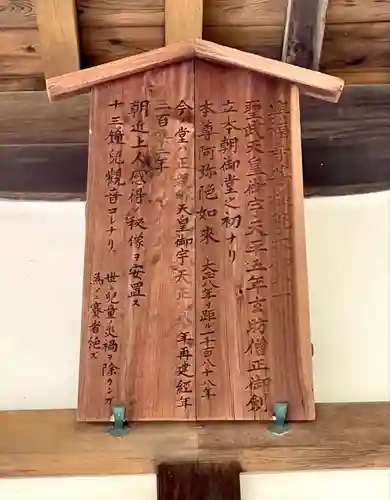 聖武天皇御宇天平五年玄昉僧正御創
立本朝御堂之初ナリ
本尊阿弥陀如来 大正八年ヲ距ル一千百八十八年
今ノ堂ハ正親町天皇御宇天正八年再建経年
三百四十年
朝近上人感得ノ秘像ヲ安置ス
十三鐘児観音コレナリ
世ニ児童ノ災禍ヲ除クンガ
為メニ賽者絶ズ